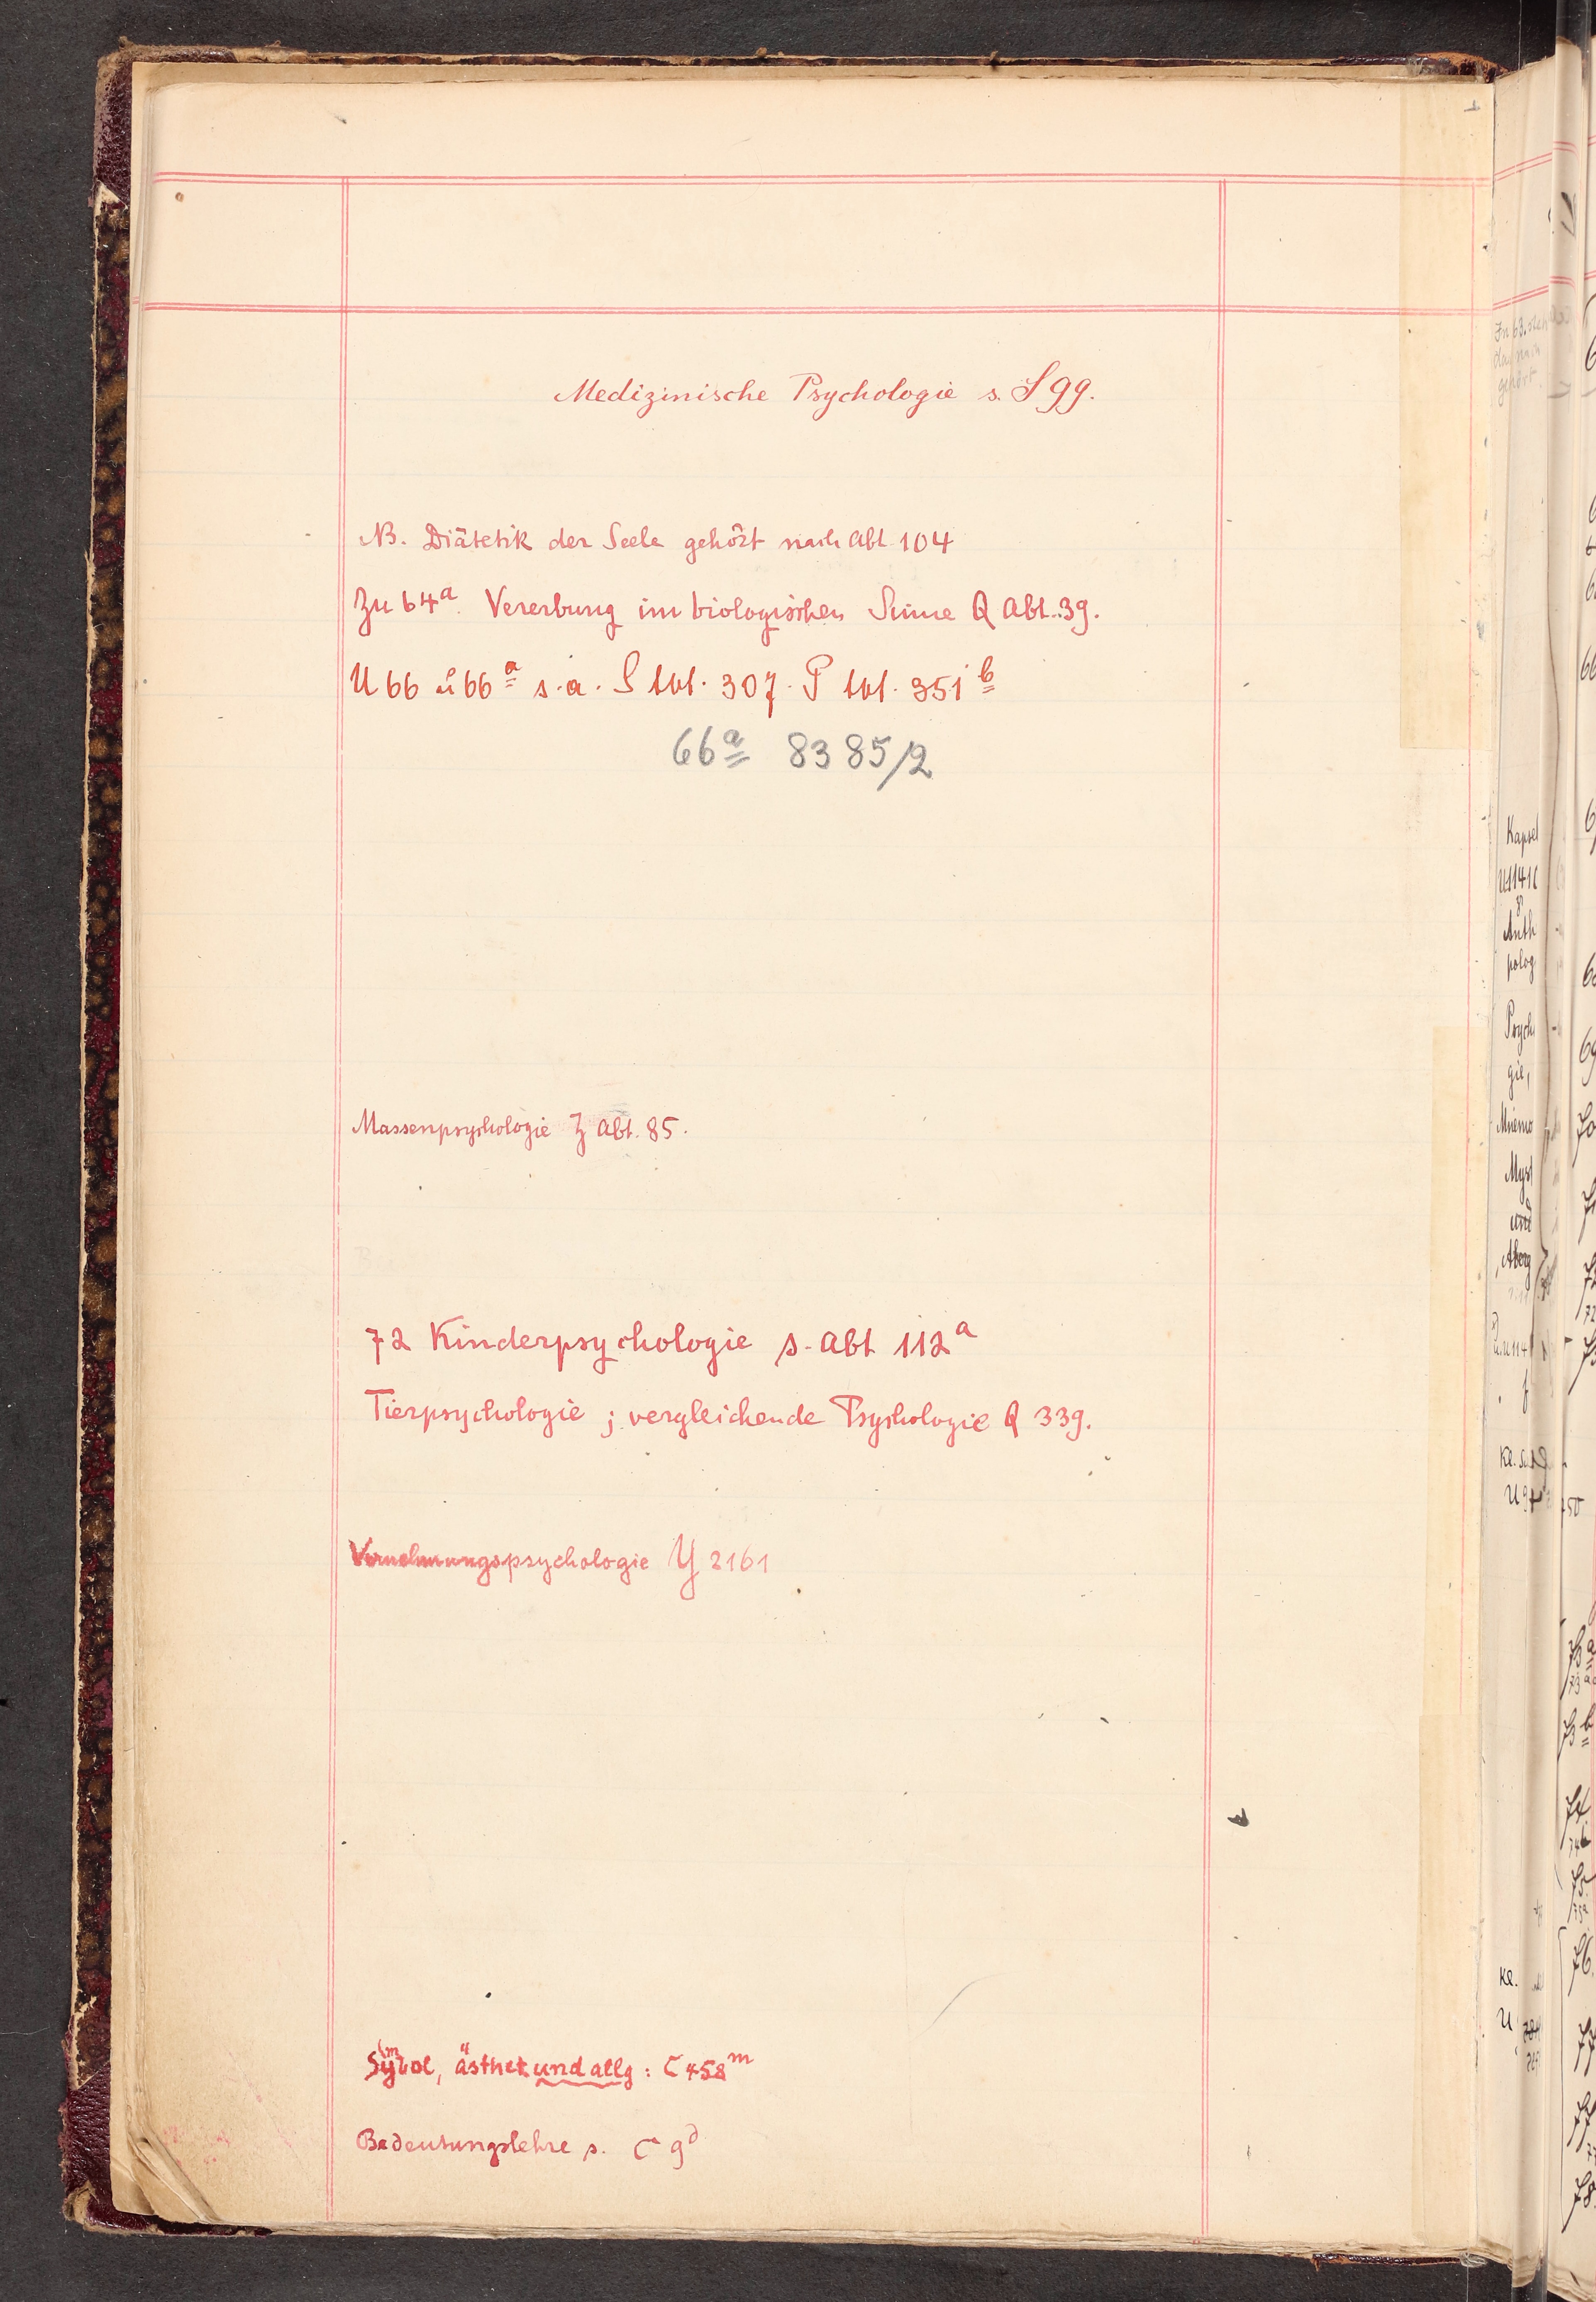 Medizinische Psychologie s. S 99.
NB. Diätetik der Seele gehört nach Abt 104
Zu 64a. Vererbung im biologischen Sinne Q Abt. 39.
U 66 u 66a s. a. S Abt. 307. P Abt. 351b
66a 8385/2
Massenpsychologie Z Abt. 85.
72 Kinderpsychologie s. Abt 112a
Tierpsychologie ; vergleichende Psychologie Q 339.
Vernehmungspsychologie Y 2161
Symbol, ästhet und allg : C 458m
Bedeutungslehre s. C 9d